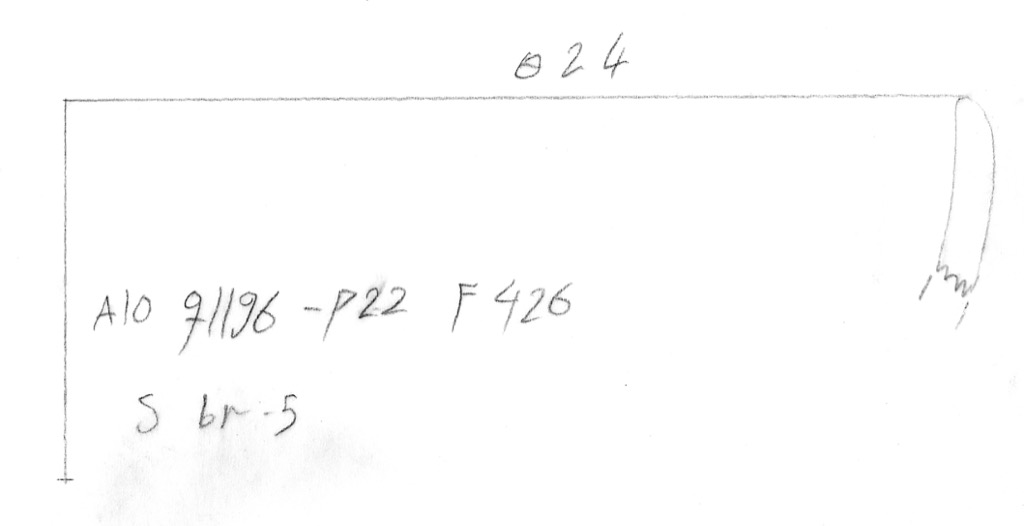 ө 24
A10 91196 - P22 F 426
S br-5